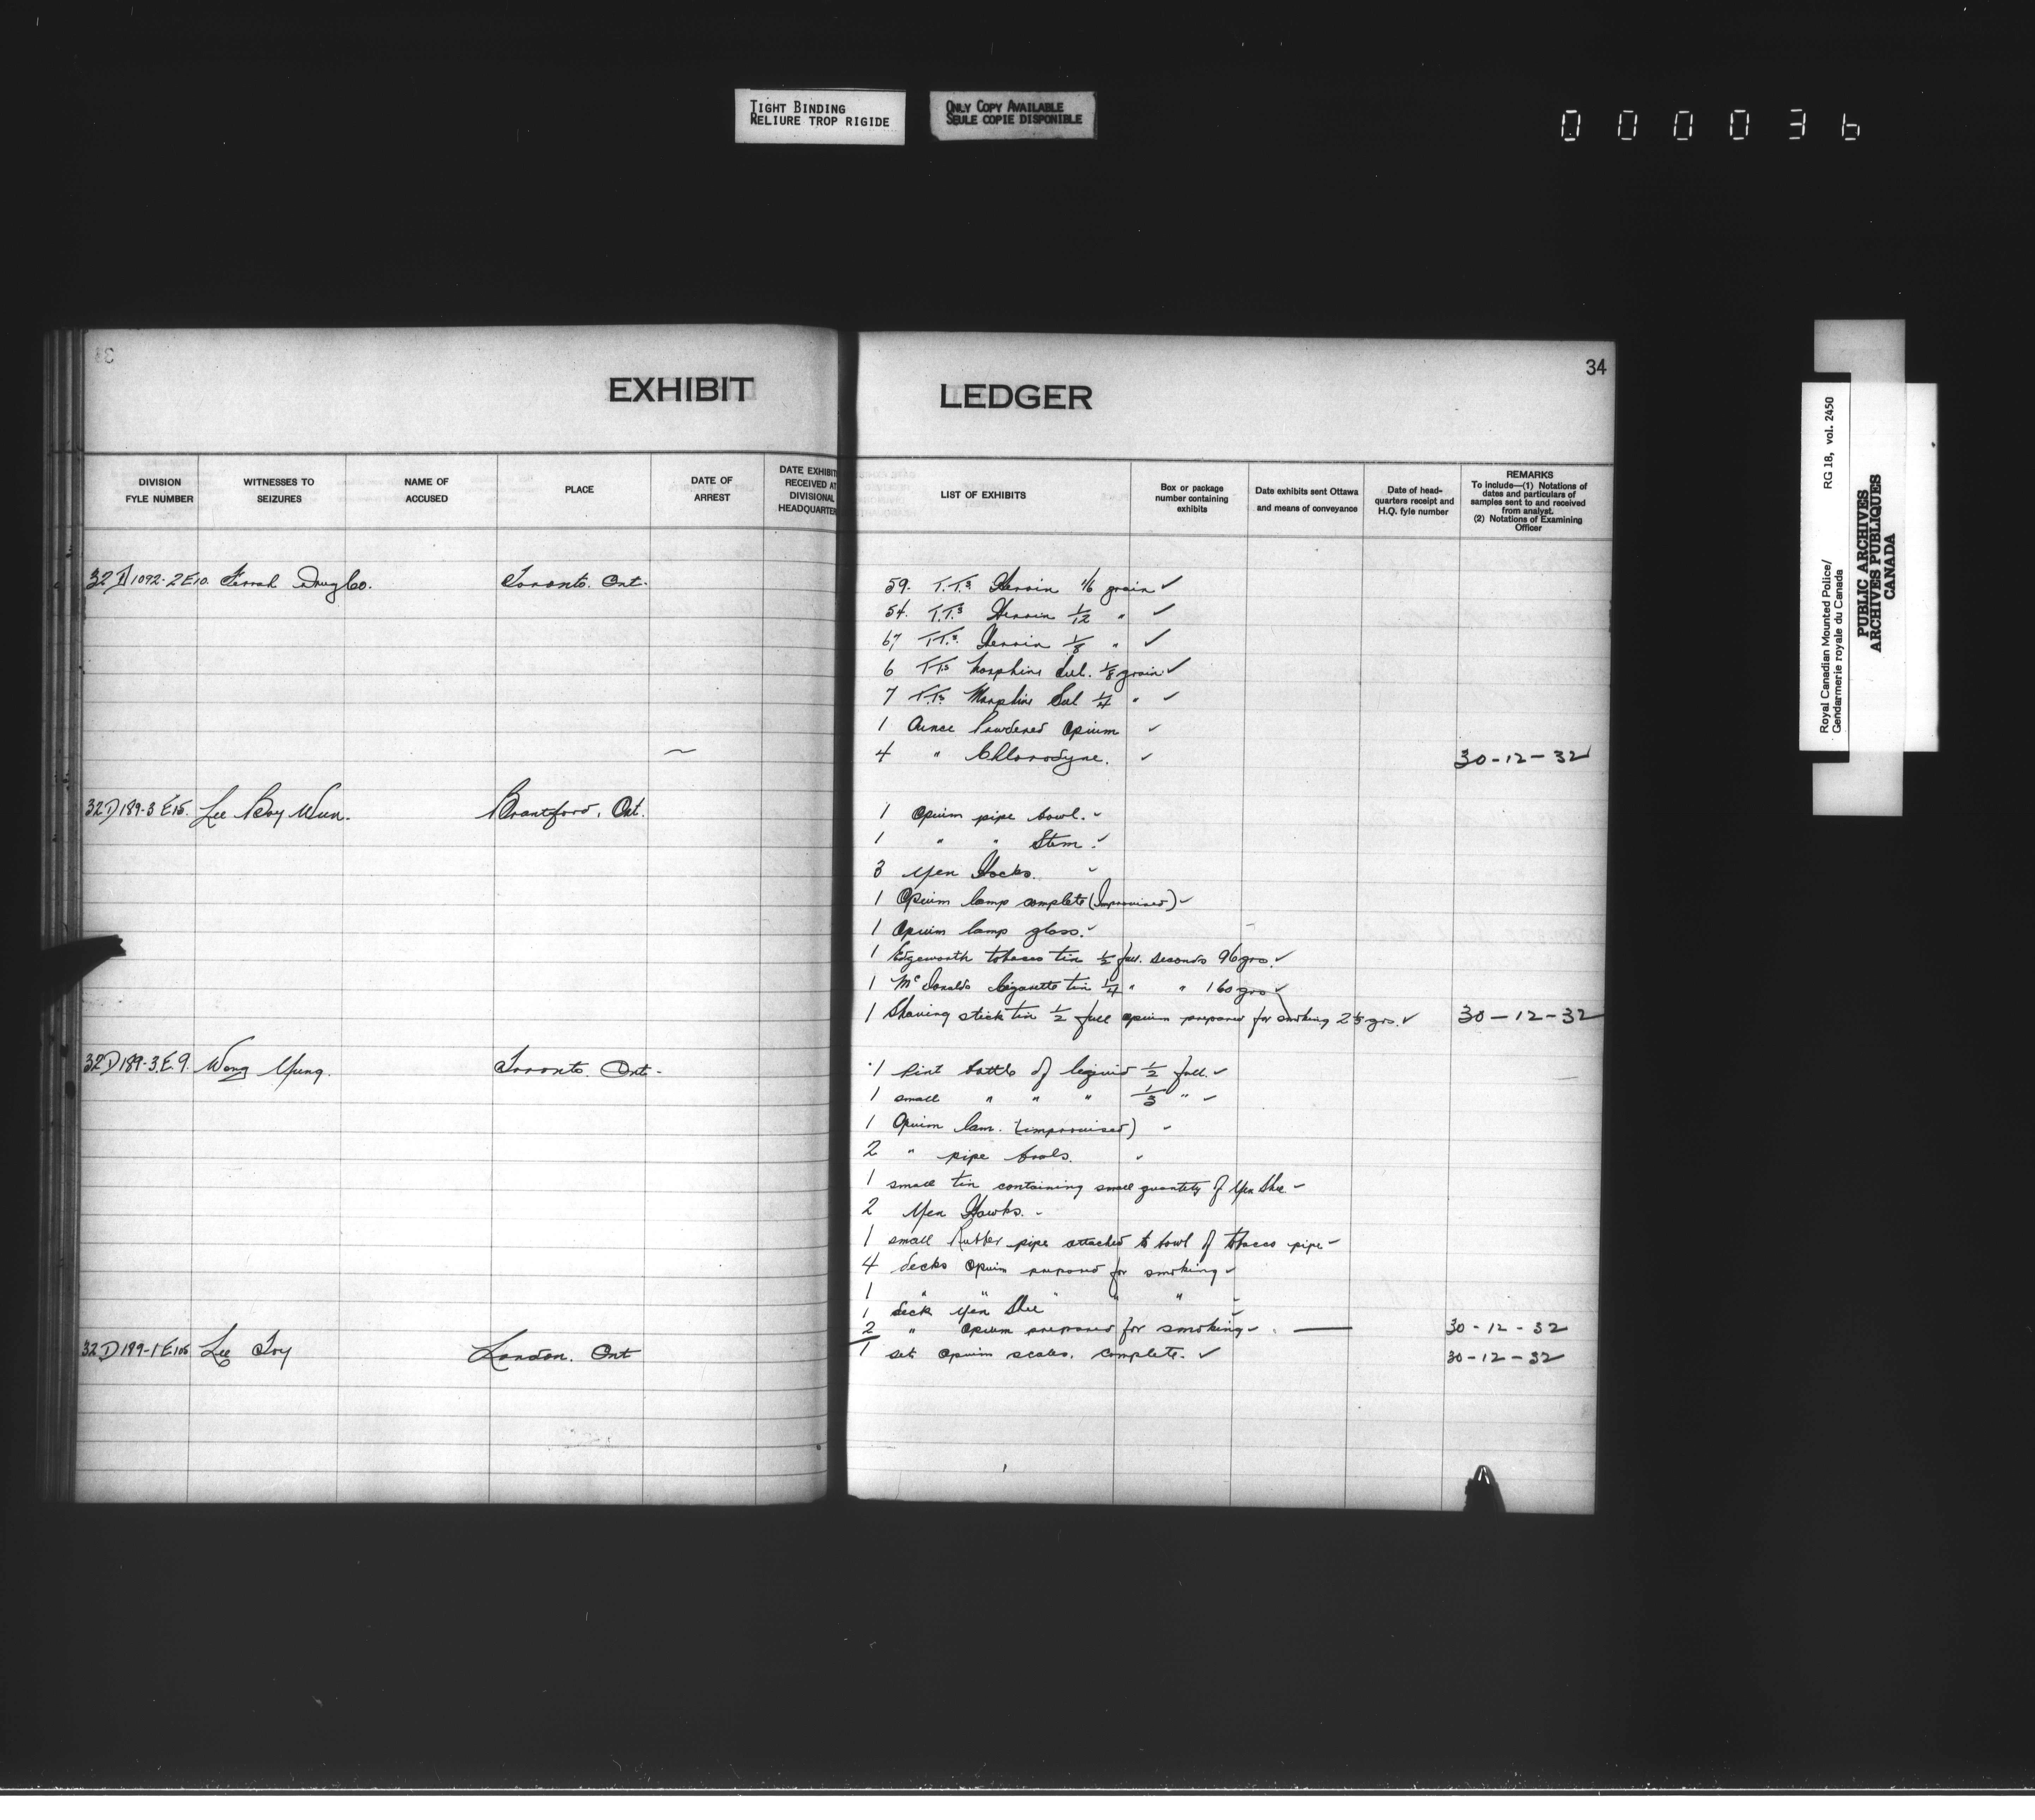 TIGHT BINDING
RELIURE TROP RIGIDE
ONLY COPY AVAILABLE
SEULE COPIE DISPONIBLE
000036
34
EXHIBIT LEDGER
DIVISION FYLE NUMBER
WITNESSES TO SEIZURES
NAME OF ACCUSED
PLACE
DATE OF ARREST
DATE EXHIBIT RECEIVED AT DIVISIONAL HEADQUARTER
LIST OF EXHIBITS
Box or package number containing exhibits
Date exhibits sent Ottawa and means of conveyance
Date of head-quarters receipt and H.Q. fyle number
REMARKS
To include—(1) Notations of dates and particulars of samples sent to and received from analyst.
(2) Notations of Examining Officer
32D1092-2E10. Drug Co. Toronto. Ont. 59. T.T.s Heroin 1/6 grain ✓
54. T.T.s Heroin 1/12 " ✓
67 T.T.s. Heroin 1/8 " ✓
6 T.T.s Morphine Sul. 1/8 grain ✓
7 T.T.s Morphine Sul 1/4 " ✓
1 Ounce Powdered Opium ✓
4 " Chlorodyne. ✓ 30-12-32
32D189-3E15. Lee Boy Wun. Brantford, Ont. 1 Opium pipe bowl. ✓
1 " " Stem. ✓
3 Yen Hocks. ✓
1 Opium lamp complete (Improvised) ✓
1 Opium lamp glass. ✓
1 Edgeworth tobacco tin 1/2 full. seconds 96 grs. ✓
1 McDonalds Cigarette tin 1/4 " " 160 grs ✓
1 Shaving stick tin 1/2 full opium prepared for smoking grs. ✓ 30-12-32
32D189-3.E.9. Wong Yung. Toronto. Ont. 1 Pint bottle of liquid 1/2 full. ✓
1 small " " " 1/3 " ✓
1 Opium lam. (improvised) ✓
2 " pipe bowls. ✓
1 small tin containing small quantity of Yen Shee ✓
2 Yen Hawks. ✓
1 small Rubber pipe attached to bowl of tobacco pipe ✓
4 decks Opium prepared for smoking ✓
1 " " " "
1 deck Yen Shee ✓
2 " Opium prepared for smoking ✓ 30-12-32
32D189-1E105 Lee Toy London. Ont 1 set opium scales. complete. ✓ 30-12-32
Royal Canadian Mounted Police/
Gendarmerie royale du Canada
RG 18, vol. 2450
PUBLIC ARCHIVES
ARCHIVES PUBLIQUES
CANADA